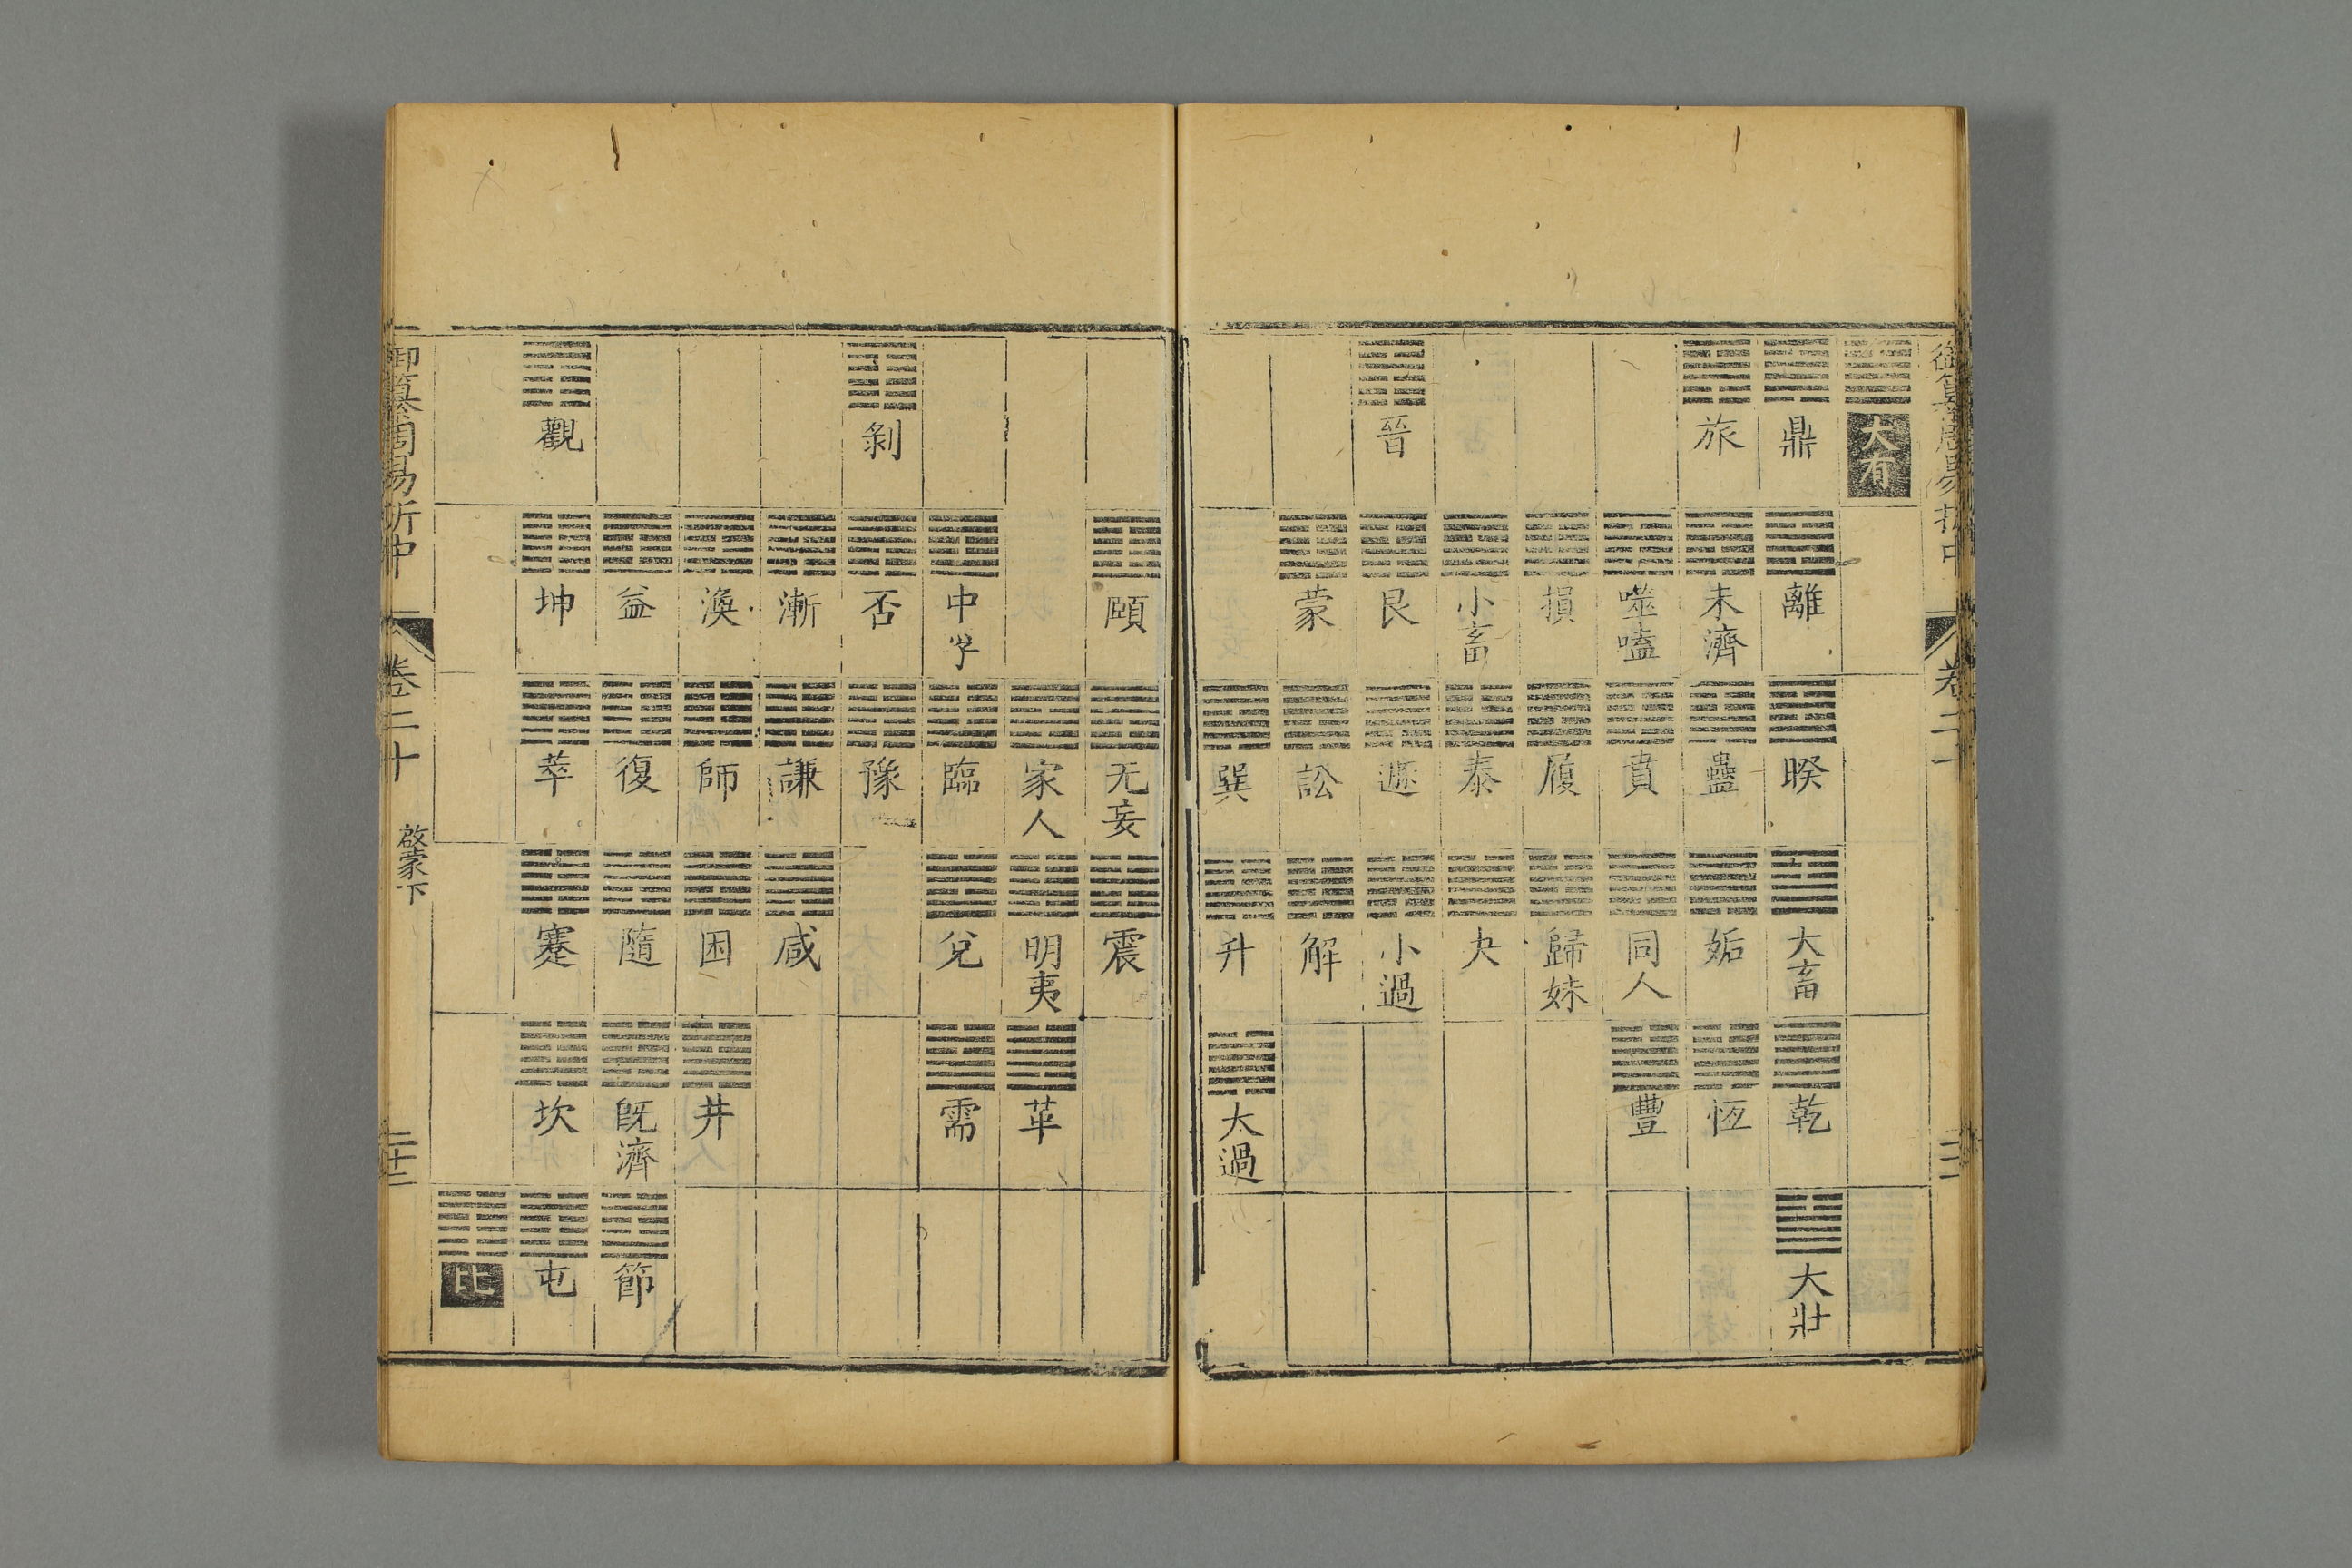 大有
鼎 離 睽 大畜 乾 大壯
旅 未濟 蠱 姤 恆
噬嗑 賁 同人 豐
損 履 歸妹
小畜 泰 夬
晉 艮 遯 小過
蒙 訟 解
巽 升 大過
頤 无妄 震
家人 明夷 革
中孚 臨 兌 需
剝 否 豫
漸 謙 咸
渙 師 困 井
益 復 隨 既濟 節
觀 坤 萃 蹇 坎 屯
比
御纂周易折中 卷二十 啟蒙下